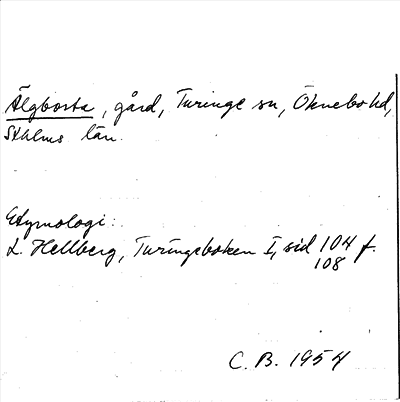 Älgbosta, gård, Turinge sn, Öknebo hd,
Sthlms län.
Etymologi:
L. Hellberg, Turingeboken I, sid 104 f.
108
C. B. 1954